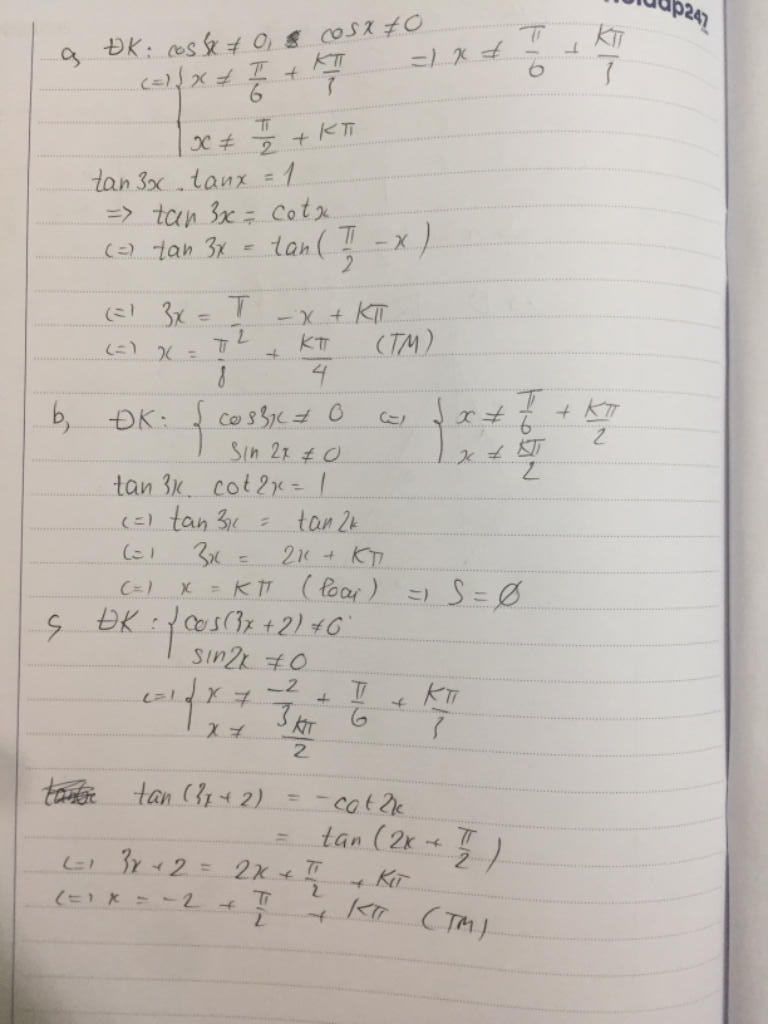 Hoidap247
a, ĐK: cos3x ≠ 0, cosx ≠ 0
(=) { x ≠ π/6 + Kπ/3 =) x ≠ π/6 + Kπ/3
x ≠ π/2 + Kπ
tan3x . tanx = 1
=> tan 3x = cotx
(=) tan 3x = tan(π/2 - x)
(=) 3x = π/2 - x + Kπ
(=) x = π/8 + Kπ/4 (TM)
b, ĐK: { cos3x ≠ 0 (=) { x ≠ π/6 + Kπ/2
sin 2x ≠ 0 x ≠ Kπ/2
tan 3x. cot2x = 1
(=) tan 3x = tan2x
(=) 3x = 2x + Kπ
(=) x = Kπ (loại) =) S = Ø
c, ĐK: { cos(3x + 2) ≠ 0
sin2x ≠ 0
(=) { x ≠ -2/3 + π/6 + Kπ/3
x ≠ Kπ/2
tan (3x + 2) = -cot2x
= tan (2x + π/2)
(=) 3x + 2 = 2x + π/2 + Kπ
(=) x = -2 + π/2 + Kπ (TM)